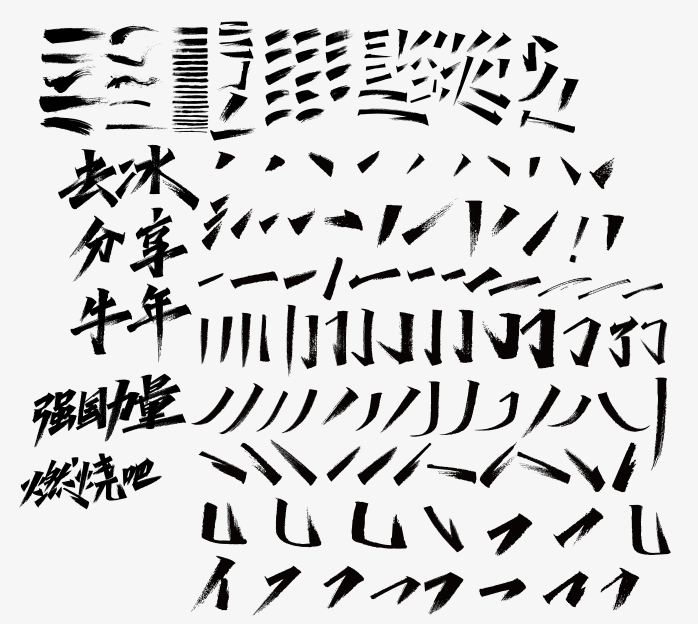 去冰
分享
牛年
强国力量
燃烧吧